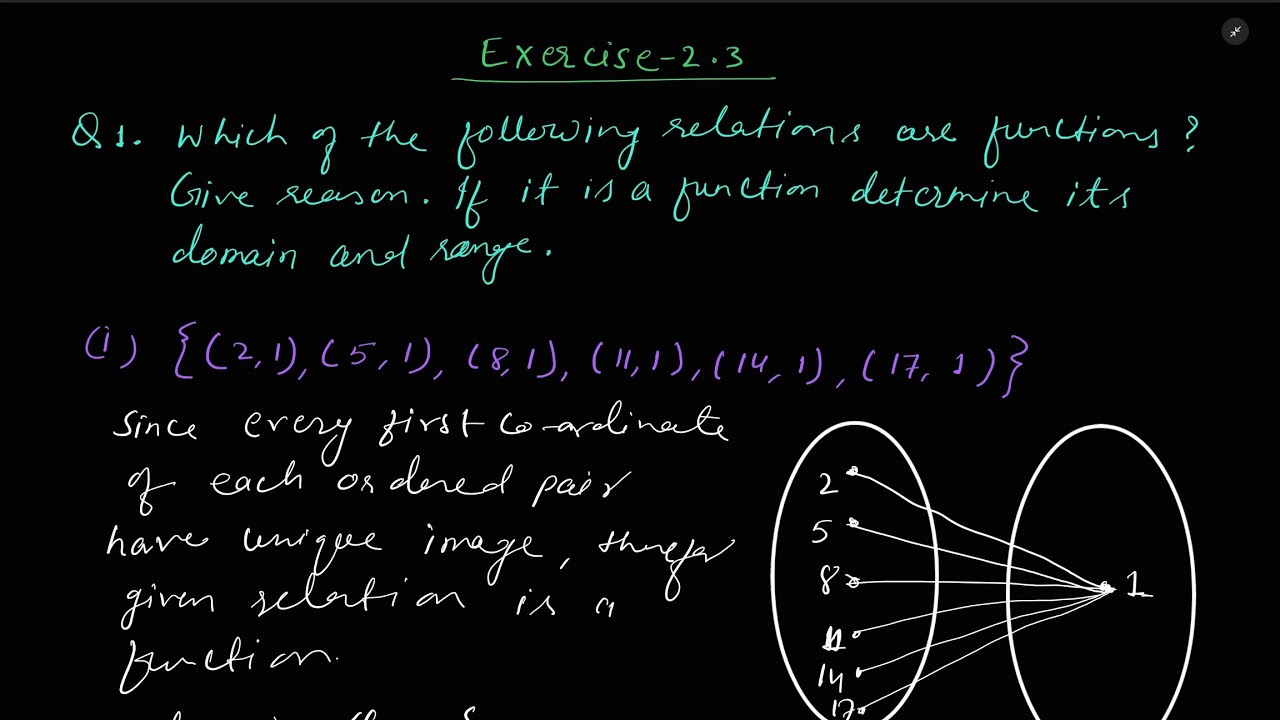 Exercise-2.3
Q1. Which of the following relations are functions?
Give reason. If it is a function determine its
domain and range.
(i) {(2,1),(5,1),(8,1),(11,1),(14,1),(17,1)}
Since every first co-ordinate
of each ordered pair
have unique image,
given relation is a
function.
2
5
8
11
14
17
1